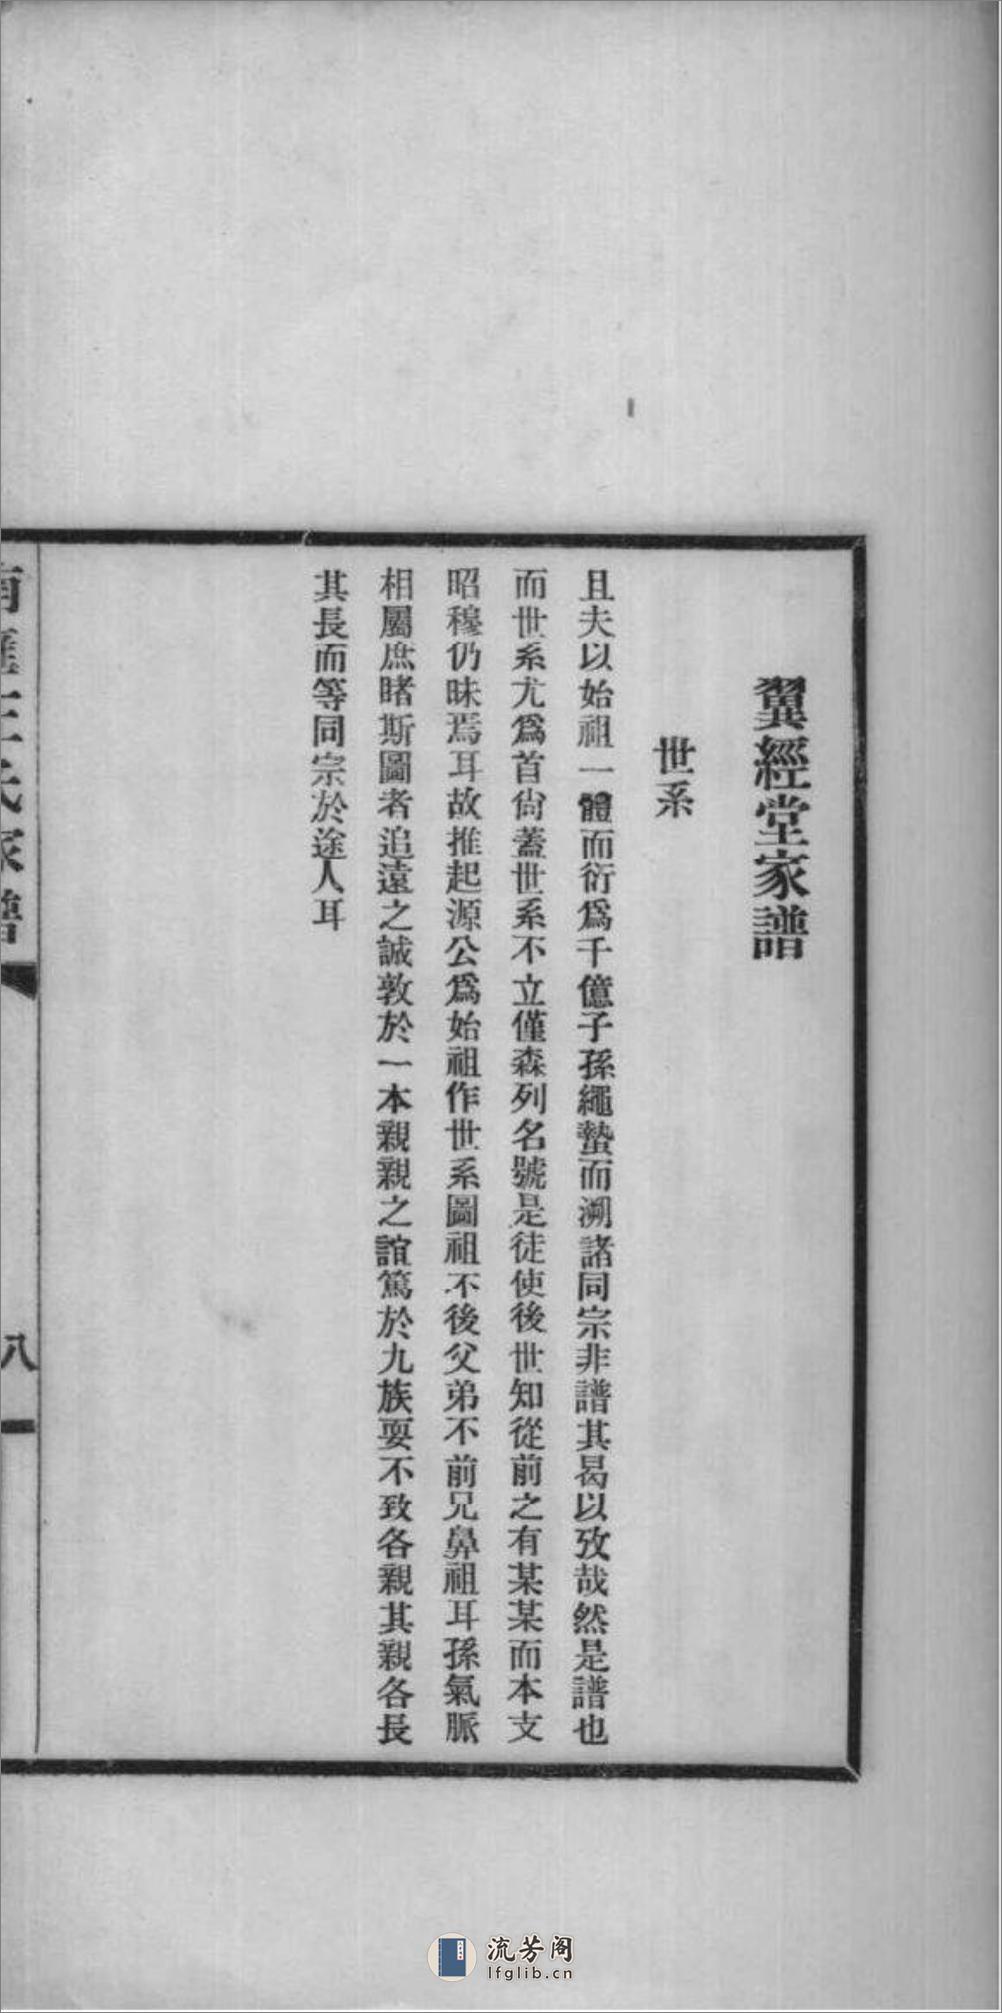 翼經堂家譜
世系
且夫以始祖一體而衍爲千億子孫繩蟄而溯諸同宗非譜其曷以攷哉然是譜也
而世系尤爲首尙蓋世系不立僅森列名號是徒使後世知從前之有某某而本支
昭穆仍昧焉耳故推起源公爲始祖作世系圖祖不後父弟不前兄鼻祖耳孫氣脈
相屬庶睹斯圖者追遠之誠敦於一本親親之誼篤於九族耍不致各親其親各長
其長而等同宗於途人耳
氏家譜
八
流芳阁
lfglib.cn